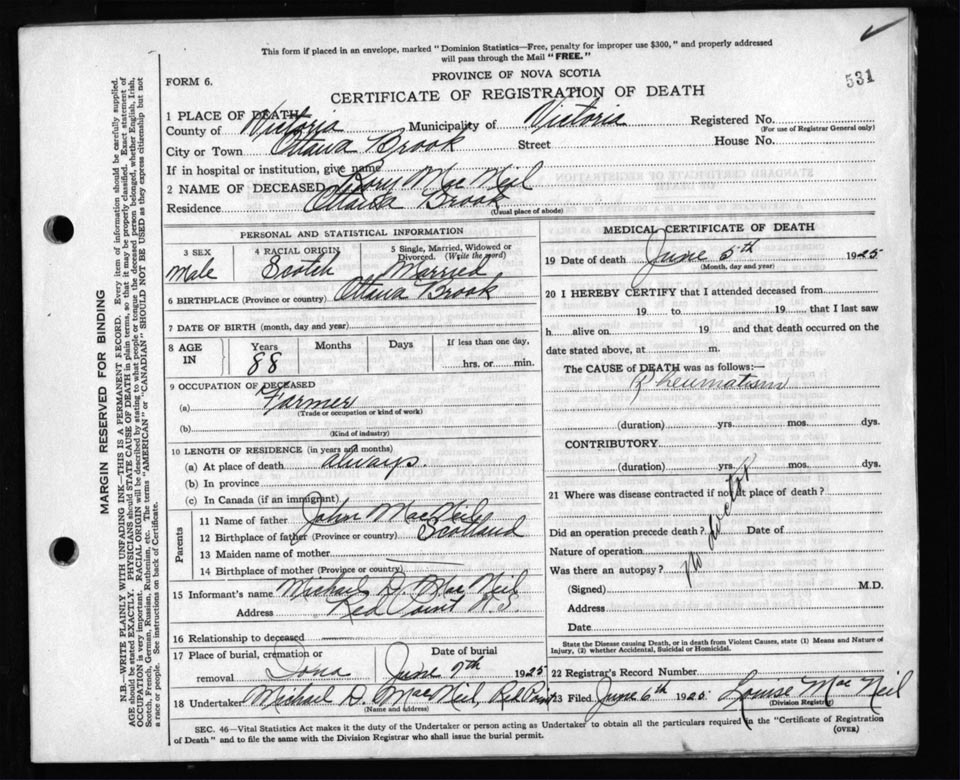 This form if placed in an envelope, marked "Dominion Statistics—Free, penalty for improper use $300," and properly addressed
will pass through the Mail "FREE."
531
FORM 6.
PROVINCE OF NOVA SCOTIA
CERTIFICATE OF REGISTRATION OF DEATH
1 PLACE OF DEATH
County of Victoria Municipality of Victoria Registered No.
(For use of Registrar General only)
City or Town Ottawa Brook Street House No.
If in hospital or institution, give name
2 NAME OF DECEASED MacNeil
Residence Ottawa Brook
(Usual place of abode)
PERSONAL AND STATISTICAL INFORMATION
3 SEX 4 RACIAL ORIGIN 5 Single, Married, Widowed or Divorced. (Write the word)
Male Scotch Married
6 BIRTHPLACE (Province or country) Ottawa Brook
7 DATE OF BIRTH (month, day and year)
8 AGE IN Years Months Days If less than one day,
88 hrs. or min.
9 OCCUPATION OF DECEASED
(a) Farmer
(Trade or occupation or kind of work)
(b)
(Kind of industry)
10 LENGTH OF RESIDENCE (in years and months)
(a) At place of death always.
(b) In province
(c) In Canada (if an immigrant)
Parents
11 Name of father John MacNeil
12 Birthplace of father (Province or country) Scotland
13 Maiden name of mother
14 Birthplace of mother (Province or country)
15 Informant's name Michael D. MacNeil
Address Red Point N.S.
16 Relationship to deceased
17 Place of burial, cremation or removal Iona
Date of burial June 7th 1925
18 Undertaker Michael D. MacNeil, Red Point
(Name and address)
MEDICAL CERTIFICATE OF DEATH
19 Date of death June 5th 1925
(Month, day and year)
20 I HEREBY CERTIFY that I attended deceased from
19 to 19 that I last saw
h alive on 19 and that death occurred on the
date stated above, at m.
The CAUSE of DEATH was as follows:—
Rheumatism
(duration) yrs. mos. dys.
CONTRIBUTORY
(duration) yrs. mos. dys.
21 Where was disease contracted if not at place of death?
Did an operation precede death? Date of
Nature of operation
Was there an autopsy?
No doctor
(Signed) M.D.
Address
Date
State the Disease causing Death, or in death from Violent Causes, state (1) Means and Nature of
Injury, (2) whether Accidental, Suicidal or Homicidal.
22 Registrar's Record Number
23 Filed June 6th 1925 Louise MacNeil
(Division Registrar)
SEC. 46—Vital Statistics Act makes it the duty of the Undertaker or person acting as Undertaker to obtain all the particulars required in the "Certificate of Registration
of Death" and to file the same with the Division Registrar who shall issue the burial permit.
(OVER)
MARGIN RESERVED FOR BINDING
N.B.—WRITE PLAINLY WITH UNFADING INK—THIS IS A PERMANENT RECORD. Every item of information should be carefully supplied.
AGE should be stated EXACTLY. PHYSICIANS should STATE CAUSE OF DEATH in plain terms, so that it may be properly classified. Exact statement of
OCCUPATION is very important. RACIAL ORIGIN will be described by stating to what people or tongue the deceased person belonged, whether English, Irish,
Scotch, French, German, Russian, Ruthenian, etc. The terms "AMERICAN" or "CANADIAN" SHOULD NOT BE USED as they express citizenship but not
a race or people. See instructions on back of Certificate.